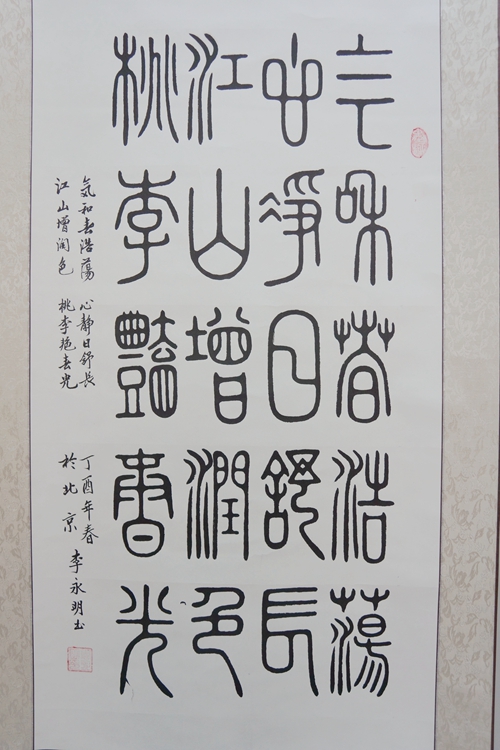 气和春浩蕩
心凈日舒長
江山增潤色
桃李豔春光
氣和春浩蕩 心静日舒長 丁酉年春
江山增润色 桃李艳春光 於北京 李永明书